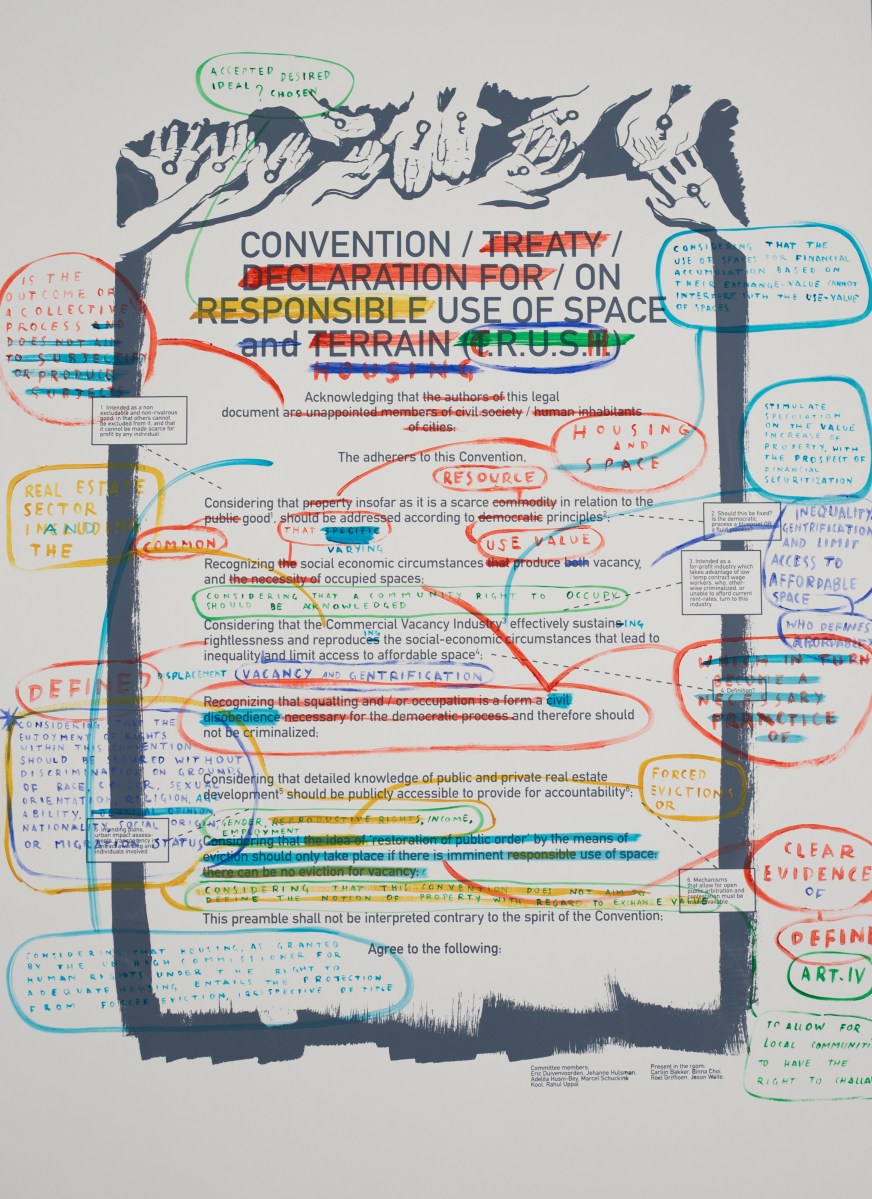 ACCEPTED DESIRED
IDEAL? CHOSEN
CONVENTION / TREATY /
DECLARATION FOR / ON
RESPONSIBLE USE OF SPACE
and TERRAIN (T.R.U.S.T.)
HOUSING
CONSIDERING THAT THE
USE OF SPACES FOR FINANCIAL
ACCUMULATION BASED ON
THEIR EXCHANGE-VALUE CANNOT
INTERFERE WITH THE USE-VALUE
OF SPACES
IS THE
OUTCOME OF
A COLLECTIVE
PROCESS AND
DOES NOT AIM
TO SUBJECTIFY
OR PRODUCE
SUBJECTS
1. Intended as a non
excludable and non-rivalrous
good; in that others cannot
be excluded from it, and that
it cannot be made scarce for
profit by any individual
Acknowledging that the authors of this legal
document are unappointed members of civil society / human inhabitants
of cities;
HOUSING
AND
SPACE
The adherers to this Convention,
RESOURCE
STIMULATE
SPECULATION
ON THE VALUE
INCREASE OF
PROPERTY, WITH
THE PROSPECT OF
FINANCIAL
SECURITIZATION
REAL ESTATE
SECTOR
AND
THE
Considering that property insofar as it is a scarce commodity in relation to the
public good¹, should be addressed according to democratic principles²;
2. Should this be fixed?
Is the democratic
COMMON
THAT SPECIFIC
VARYING
USE VALUE
INEQUALITY
GENTRIFICATION
AND LIMIT
ACCESS TO
AFFORDABLE
SPACE
Recognizing the social economic circumstances that produce both vacancy,
and the necessity of occupied spaces;
3. Intended as a
for-profit industry which
takes advantage of low
/ temp contract wage
workers, who, other-
wise criminalized, or
unable to afford current
rent-rates, turn to this
industry.
CONSIDERING THAT A COMMUNITY RIGHT TO OCCUPY
SHOULD BE ACKNOWLEDGED
WHO DEFINES
AFFORDABLE?
Considering that the Commercial Vacancy Industry³ effectively sustains ING
rightlessness and reproduces ING the social-economic circumstances that lead to
inequality and limit access to affordable space⁴;
DISPLACEMENT (VACANCY AND GENTRIFICATION
DEFINED
WHICH IN TURN
BECOME A
NECESSARY
PRACTICE
OF
4. Definition?
Recognizing that squatting and / or occupation is a form a civil
disobedience necessary for the democratic process and therefore should
not be criminalized;
CONSIDERING THAT THE
ENJOYMENT OF RIGHTS
WITHIN THIS CONVENTION
SHOULD BE SECURED WITHOUT
DISCRIMINATION ON GROUNDS
OF RACE, COLOR, SEXUAL
ORIENTATION, RELIGION, AGE
ABILITY, OPINION
NATIONALITY, SOCIAL ORIGIN,
OR MIGRATION STATUS
Considering that detailed knowledge of public and private real estate
development⁵ should be publicly accessible to provide for accountability⁶;
FORCED
EVICTIONS
OR
GENDER, REPRODUCTIVE RIGHTS, INCOME,
EMPLOYMENT
urban impact assess-
individuals involved
Considering that the idea of 'restoration of public order' by the means of
eviction should only take place if there is imminent responsible use of space;
there can be no eviction for vacancy;
CLEAR
EVIDENCE
OF
6. Mechanisms
that allow for open
public arbitration and
contestation must be
CONSIDERING THAT THIS CONVENTION DOES NOT AIM TO
DEFINE THE NOTION OF PROPERTY WITH REGARD TO EXCHANGE VALUE
This preamble shall not be interpreted contrary to the spirit of the Convention;
Agree to the following:
CONSIDERING THAT HOUSING, AS GRANTED
BY THE UN HIGH COMMISSIONER FOR
HUMAN RIGHTS UNDER THE RIGHT TO
ADEQUATE HOUSING ENTAILS THE PROTECTION
FROM FORCED EVICTION, IRRESPECTIVE OF TITLE
DEFIN
ART. IV
TO ALLOW FOR
LOCAL COMMUNITI
TO HAVE THE
RIGHT TO CHALLA
Committee members:
Eric Duivenvoorden, Jehanne Hulsman,
Adelita Husni-Bey, Marcel Schuckink
Kool, Rahul Uppal
Present in the room:
Carlijn Bakker, Binna Choi,
Roel Griffioen, Jason Waite